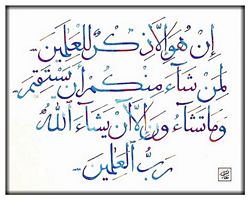 إن هو إلا ذكر للعلمين
لمن شاء منكم أن يستقيم
وما تشاءون إلا أن يشاء الله
رب العلمين